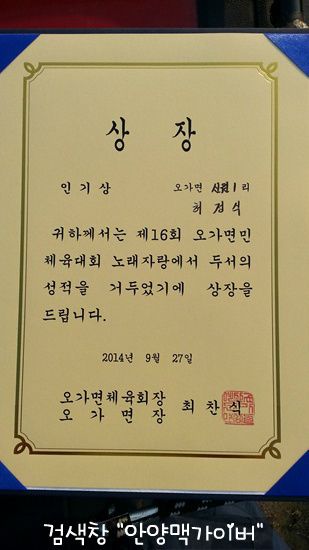 상 장
인기상 오가면 신원1리
허정식
귀하께서는 제16회 오가면민
체육대회 노래자랑에서 두서의
성적을 거두었기에 상장을
드립니다.
2014년 9월 27일
오가면체육회장
오가면장 최찬식
검색창 "안양맥가이버"